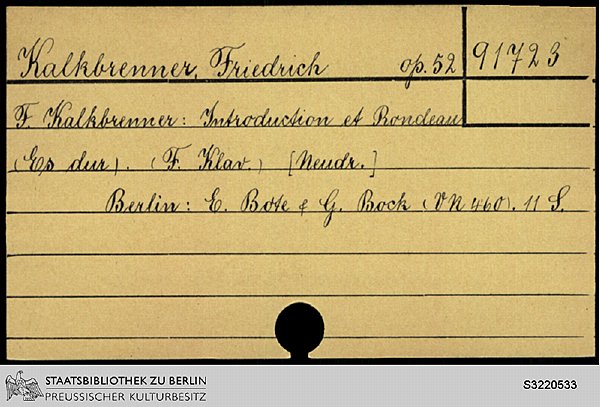 Kalkbrenner, Friedrich op. 52 91723
F. Kalkbrenner: Introduction et Rondeau
(Es dur). (F. Klav.) [Neudr.]
Berlin: E. Bote & G. Bock (VN 460). 11 S.
STAATSBIBLIOTHEK ZU BERLIN
PREUSSISCHER KULTURBESITZ
S3220533